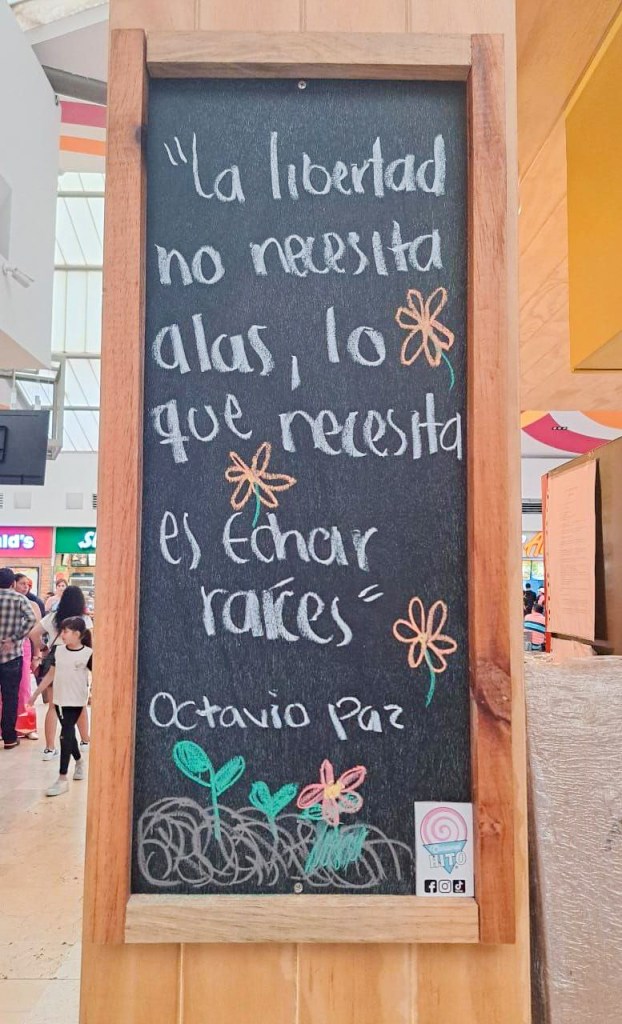 "La libertad
no necesita
alas, lo
que necesita
es Echar
raíces"
Octavio Paz
HITO
ld's